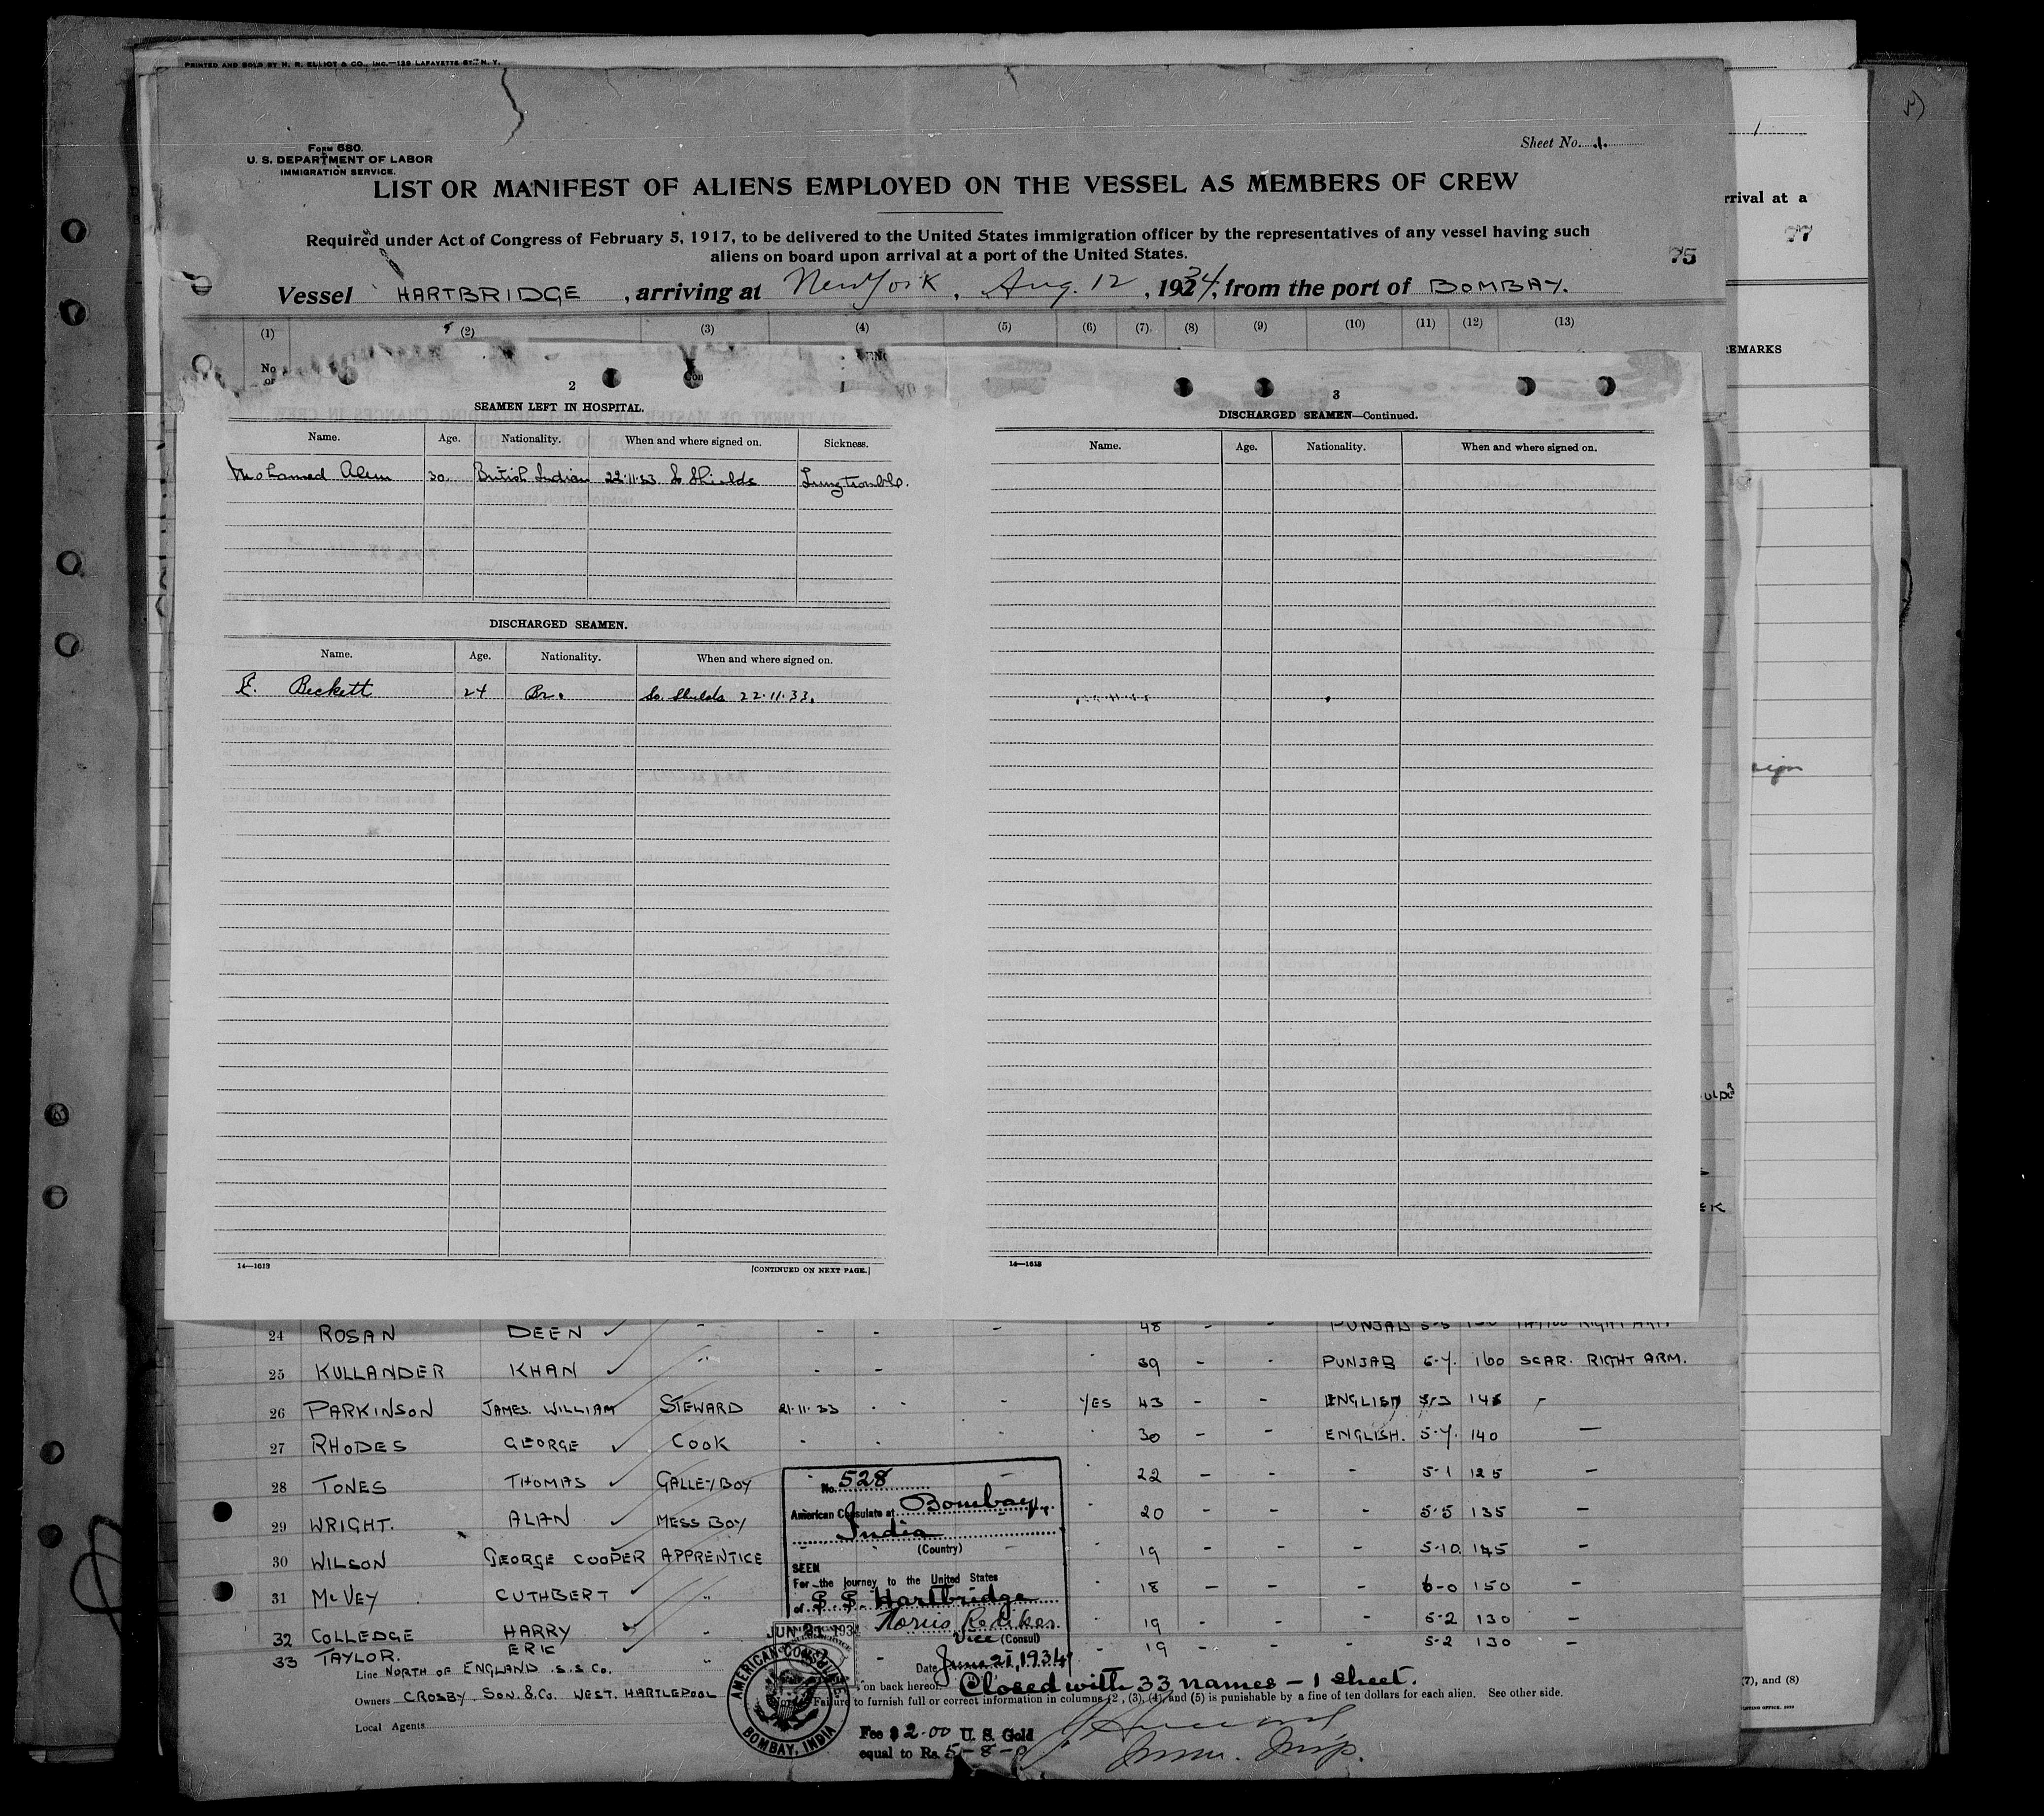 PRINTED AND SOLD BY H. R. ELLIOT & CO., INC.—129 LAFAYETTE ST., N. Y.
Form 680.
U. S. DEPARTMENT OF LABOR
IMMIGRATION SERVICE.
Sheet No. 1.
LIST OR MANIFEST OF ALIENS EMPLOYED ON THE VESSEL AS MEMBERS OF CREW
Required under Act of Congress of February 5, 1917, to be delivered to the United States immigration officer by the representatives of any vessel having such
aliens on board upon arrival at a port of the United States.
75
rrival at a
77
Vessel HARTBRIDGE, arriving at New York, Aug. 12, 1934, from the port of BOMBAY.
(1) (2) (3) (4) (5) (6) (7) (8) (9) (10) (11) (12) (13)
EMARKS
No
or
2
SEAMEN LEFT IN HOSPITAL.
Name. Age. Nationality. When and where signed on. Sickness.
Mohamed Alim 30. British Indian 22.11.33 So Shields Lung trouble.
DISCHARGED SEAMEN.
Name. Age. Nationality. When and where signed on.
E. Beckett 24 Br. So. Shields 22.11.33.
14—1613
[CONTINUED ON NEXT PAGE.]
3
DISCHARGED SEAMEN—Continued.
Name. Age. Nationality. When and where signed on.
14—1613
24 ROSAN DEEN ✓ " - - - 48 - - PUNJAB 5-5
25 KULLANDER KHAN ✓ " - - 39 - - PUNJAB 5-7. 160 SCAR. RIGHT ARM.
26 PARKINSON JAMES. WILLIAM STEWARD 21.11.33 - - - YES 43 - - ENGLISH 5-3 145 -
27 RHODES GEORGE ✓ COOK - - 30 - - ENGLISH. 5-7. 140 -
28 TONES THOMAS ✓ GALLEY BOY - - 22 - - - 5-1 125 -
29 WRIGHT. ALAN ✓ MESS BOY 20 - - - 5-5 135 -
30 WILSON GEORGE COOPER APPRENTICE 19 - - - 5-10. 145 -
31 McVEY CUTHBERT ✓ " 18 - - - 6-0 150 -
32 COLLEDGE HARRY ✓ " 19 - - - 5-2 130 -
33 TAYLOR. ERIC ✓ " 19 - - - 5-2 130 -
No. 528
American Consulate at Bombay,
India
(Country)
SEEN
For the journey to the United States
of S.S. Hartbridge
Vice (Consul)
JUN 21 1934
Date June 21, 1934
Line NORTH OF ENGLAND S.S Co.
Owners CROSBY. SON. & Co. WEST. HARTLEPOOL
Local Agents
on back hereof.
Closed with 33 names - 1 sheet.
Failure to furnish full or correct information in columns (2), (3), (4), and (5) is punishable by a fine of ten dollars for each alien. See other side.
AMERICAN CONSULATE
BOMBAY, INDIA
Fee $ 2.00 U. S. Gold
equal to Rs. 5-8-0
Imm. Insp.
(7), and (8)